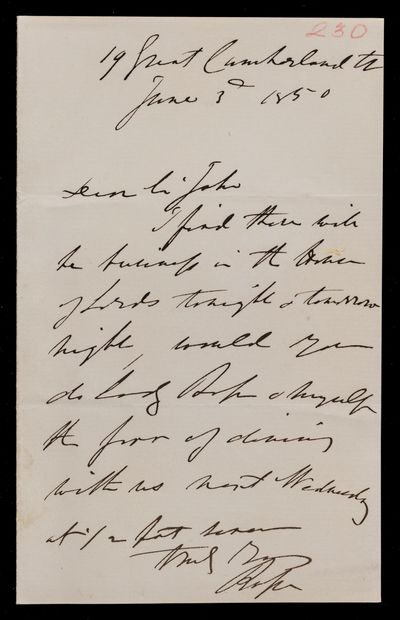 230
19 Great Cumberland St
June 3d 1850
Dear Sir John
I find there will
be business in the House
of Lords tonight & tomorrow
night, would you
do Lady Rosse & myself
the favor of dining
with us next Wednesday
at 1/2 past seven
truly yrs
Rosse